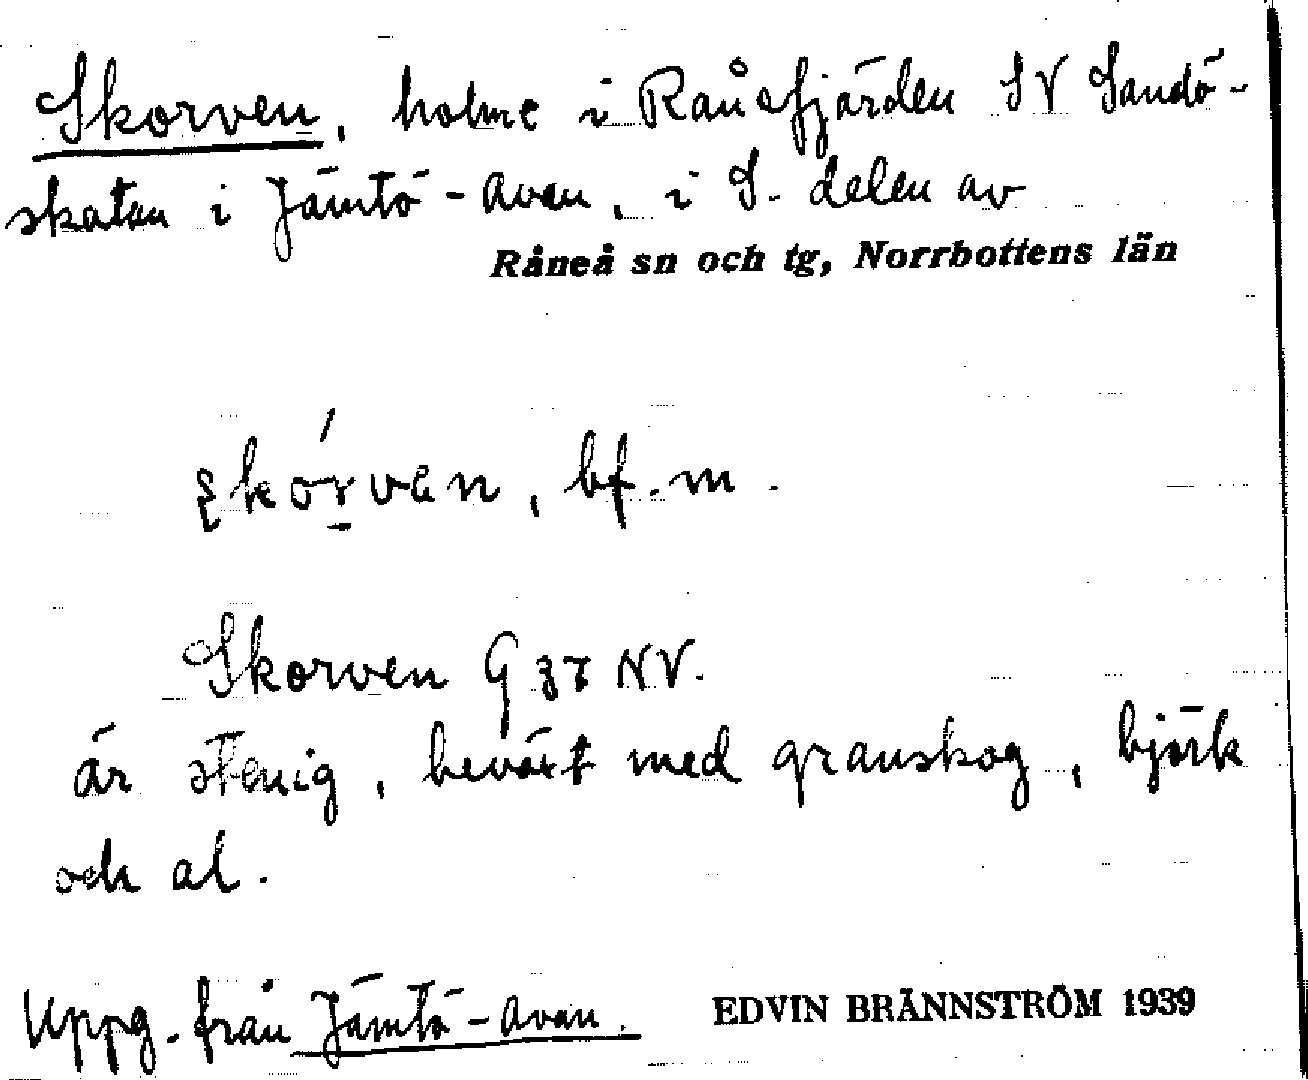 Skorven, holme i Rånefjärden SV Sandö-
skatan i Jämtö-Avan, i S. delen av
Råneå sn och tg, Norrbottens län
skórvan, bf. m.
Skorven G 37 NV.
är stenig, beväxt med granskog, björk
och al.
Uppg. från Jämtö-Avan.
EDVIN BRÄNNSTRÖM 1939